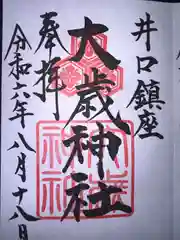 井口鎮座
大歳神社
奉拝
令和六年八月十八日